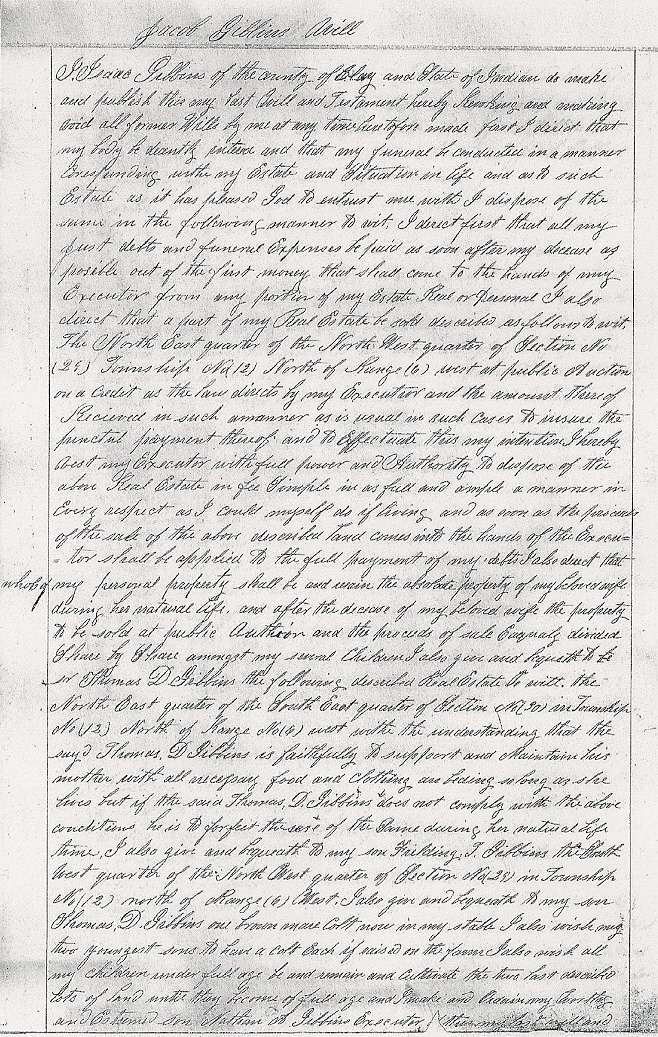 Jacob Gibbins Will
I, Isaac Gibbins of the county of Clay and State of Indian do make
and publish this my last Will and Testament hereby Revoking and making
void all former Wills by me at any time heretofore made first I direct that
my body be decently intered and that my funeral be conducted in a manner
Corresponding with my Estate and Situation in life and as to such
Estate as it has pleased God to entrust me with I dispose of the
same in the following manner to wit. I direct first that all my
just debts and funeral Expenses be paid as soon after my decease as
posible out of the first money that shall come to the hands of my
Executor from any portion of my Estate Real or Personal I also
direct that a part of my Real Estate be sold described as follows to wit.
The North East quarter of the North West quarter of Section No
Township No (12) North of Range (6) west at public Auction
on a credit as the law directs by my Executior and the amount thereof
Recieved in such a manner as is usual in such cases to insure the
punctul payment thereof and to Effectuate this my intention I hereby
vest my Executor with full power and Authority to dispose of the
above Real Estate in fee Simple in as full and ample a manner in
Every respect as I could myself do if living and as soon as the proceeds
of the sale of the above described land comes into the hands of the Execu=
=tor shall be applied to the full payment of my debts I also direct that
whole of my personal property shall be and remain the absolute property of my beloved wife
during her natural life, and after the decease of my beloved wife the property
to be sold at public Auction and the proceeds of sale Equaly divided
Share by Share amongst my several Children I also give and bequeath to
Thomas D Gibbins the following described Real Estate to witt. the
North East quarter of the South East quarter of Section in Township
No (12) North of Range No (6) west with the understanding that the
sayd Thomas. D Gibbins is faithfully to suppoort and Maintain his
mother with all necessary food and clothing and beding so long as she
lives but if the said Thomas, D. Gibbins does not comply with the above
conditions he is to forfeit the of the Same during her natural life
time, I also give and bequeath to my son Fielding, T. Gibbins the South
West quarter of the North West quarter of Section No (28) in Township
No (12) north of Range (6) West. I also give and bequeath to my son
Thomas, D Gibbins one brown mare Colt now in my stable I also wish my
two youngest sons to have a colt Each if raised on the farm I also wish all
my children under full age be and remain and Cultivate the two last described
lots of land until they become of full age and I make and Ordain my worthy
and Esteemed son Nathan Gibbins Executor this my last will and